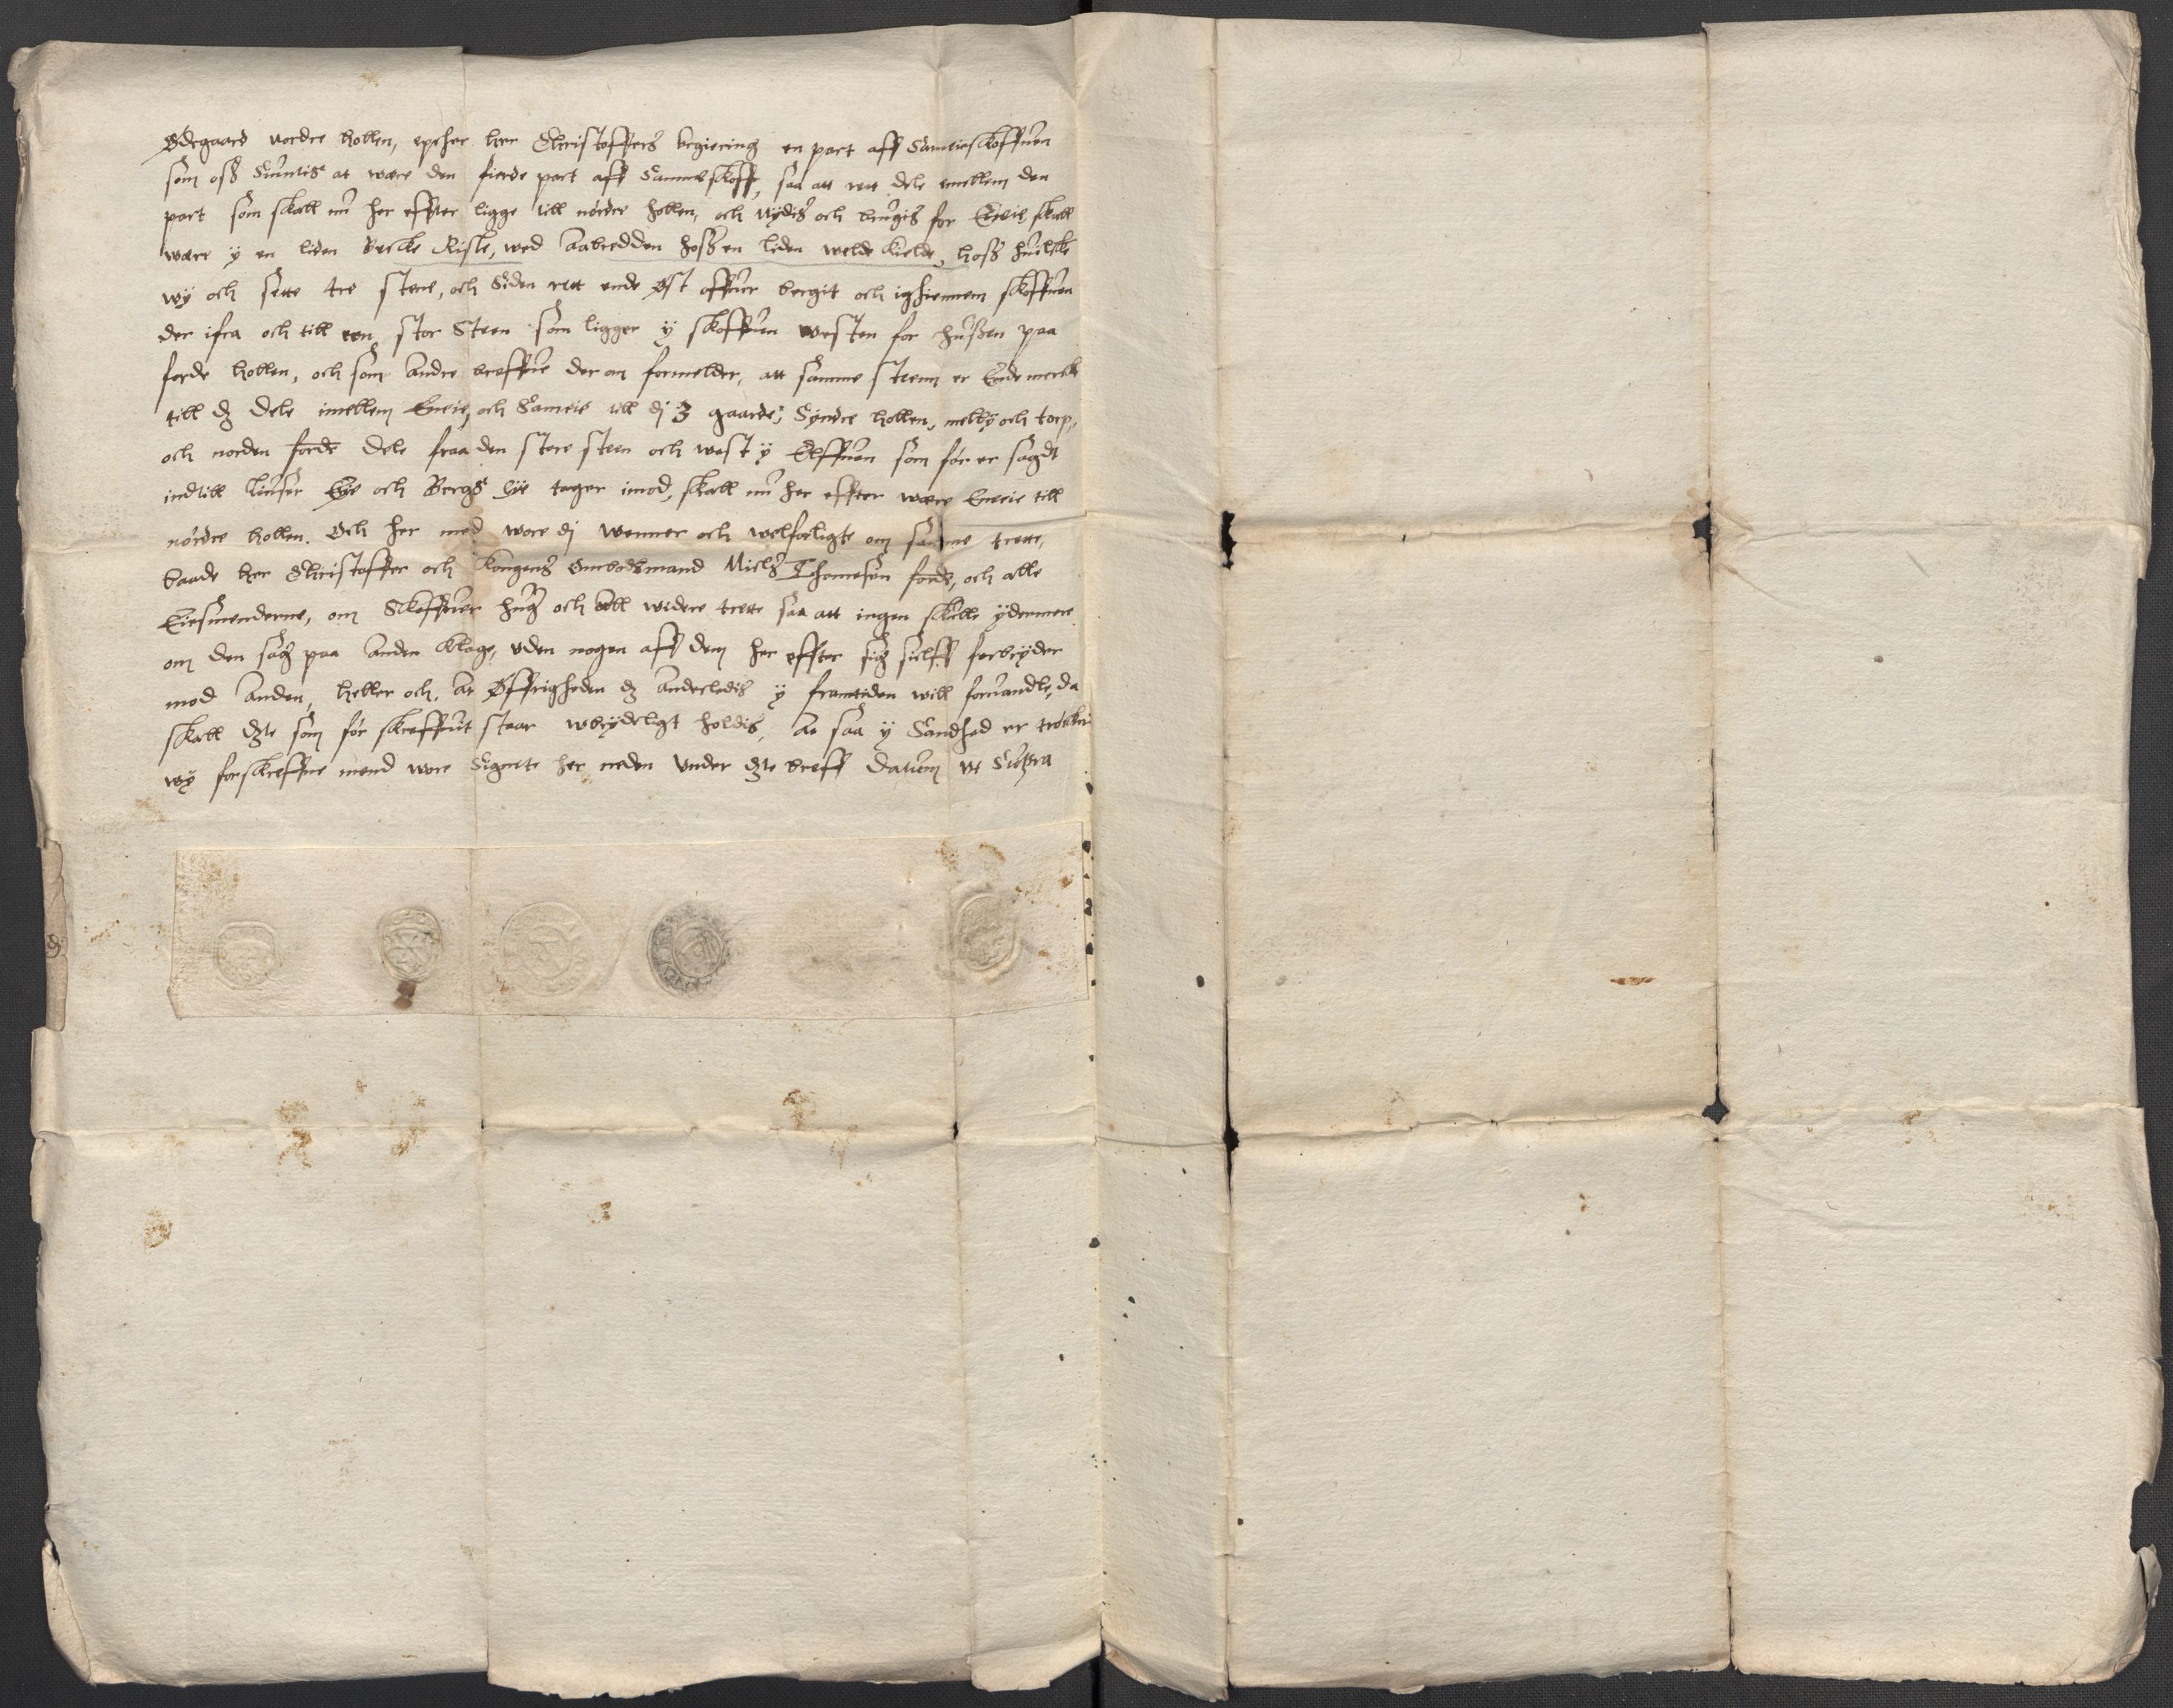 Ødegaard nordre hollen, epther her Christoffers begiering en part aff Sameieskoffuen
som oss Siuntis at were den fierde part aff Samme skoff, saa att rett dele emellem den
part som skall nu her effter ligge till nørdre hollen, och nydis och brugis for Eneie skall
were y en liden Becke Risle, wed Aabredden hoss en liden welde kielde, hoss huilcke
wy och sette tre stene, och Siden rett ende Øst offuer bergit och ighiennem skoffuen
der ifra och till een stor Steen som ligger y skoffuen westen for husen paa
forde hollen, och som Andre breffue der om formelder, att samme steenn er Ende mercke
till dj dele imellem Eneie, och Sameie till dj 3 gaarde, Syndre hollen, melby och torp,
och norden forde dele fraa den store steen och west y Elffuen som før er sagdt
indtill Eye och Bergs Eye tager imod, skall nu her effter were Eneie till
nørdre hollen. Och her med wore dj wenner och welforligte om samme trette,
baade her Christoffer och Kongens Ombodzmand Niels Thomesen forde, och alle
Eiesmenderne, om Skoffuer hug och All widere trette saa att ingen skulle ydermere
om den sag paa Anden klage, uden nogen aff dem her effter sig sielff forbryder
mod Anden, heller och, At Øffrigheden dj Anderledis y framtiden will foruandle, da
skall dtte som før skreffuit staar wbrydeligt holdis, At saa y Sandhed er trøcker
wy forskreffne mend wore Signete her neden under dtte breff Datum ut Supra